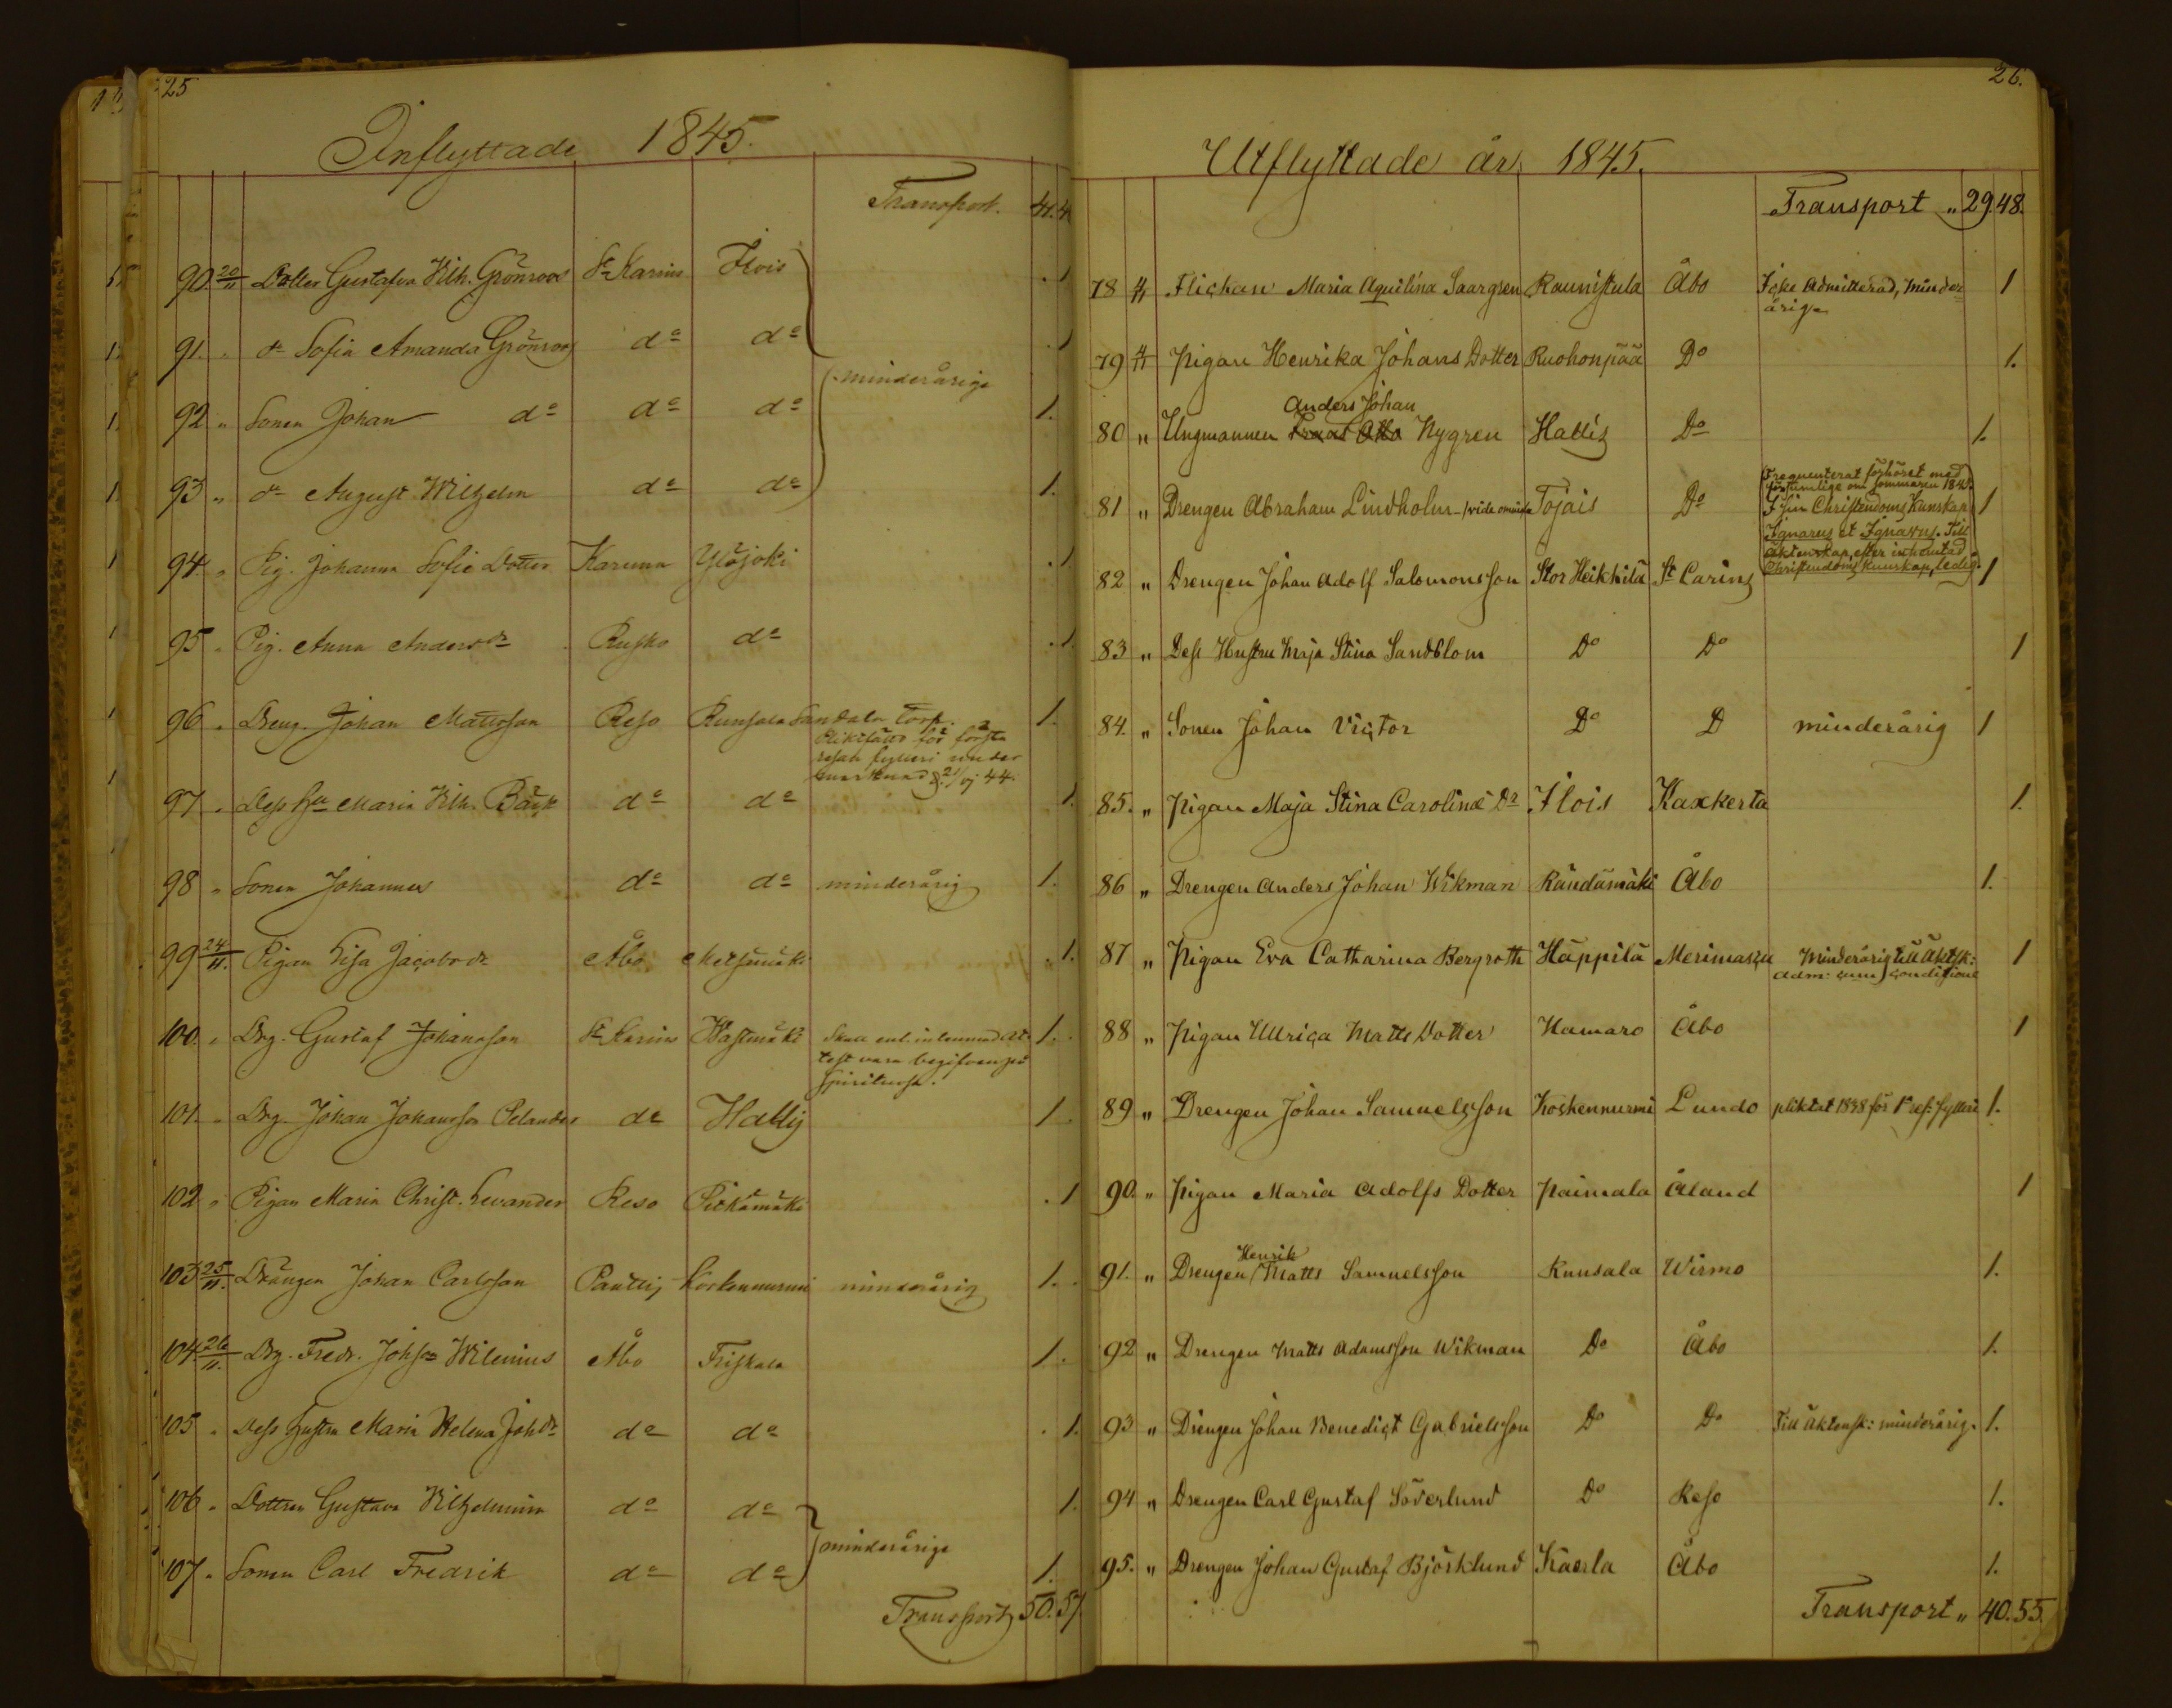 25
Inflyttade 1845.
Transport. 41. 4
90. 20/11 Dotter Gustafva Vilh. Grönroos St Karins Ilois . 1
91. " do Sofia Amanda Grönroos do do . 1
minderårige
92 " Sonen Johan do do do 1.
93 " do August Wilhelm do do 1.
94. " Pig. Johanna Sofie Dotter Karuna Yläjoki . 1
95 " Pig. Anna Andersdr Rusko do . 1
96 " Dreng. Johan Mattsson Reso Runsala Sandala torp. 1.
Pliktfälld för första
resan fylleri under
marknad d. 21/vj 44.
97 " Dess Hu Maria Vilh. Bäck do do 1.
98 " Sonen Johannes do do minderårig 1.
99 24/11. Pigan Lisa Jacobsdr Åbo Metsämäki . 1.
100. " Drg. Gustaf Johansson St Karins Wastmäki Skall enl. inlemnad At- 1.
test vara begifven på
spirituosa.
101. " Drg. Johan Johansson Pelander do Hallis 1
102 " Pigan Maria Christ. Levander Reso Pitkämäki . 1
103 25/11. Drängen Johan Carlsson Pantlis Koskennurmi minderårig 1.
104. 26/11. Drg. Fredr. Johsson Wilenius Åbo Friskala 1.
105 " Dess hustru Maria Helena Johdr do do . 1.
106 " Dottren Gustava Vilhelmina do do 1.
minderårige
107. " Sonen Carl Fredrik do do 1.
Transport 50. 57
26.
Utflyttade år 1845.
Transport " 29. 48.
78 4/11 Flickan Maria Aquilina Saargren Raunistula Åbo Icke Admitterad, minder 1
årig
79 4/11 Pigan Henrika Johans Dotter Ruohonpää Do 1.
Anders Johan
80 " Ungmannen Nygren Hallis Do 1.
Frequenterat förhöret med
försumlige om sommaren 1845.
81 " Drengen Abraham Lindholm Tojais Do I sin Christendoms Kunskap 1
Ignarus et Ignavus. Till
Äktenskap, efter inhemtad
Christendoms kunskap, ledig.
82 " Drengen Johan Adolf Salomonsson Stor Heikkilä St Carins 1
83 " Dess Hustru Maja Stina Sandblom Do Do 1
84. " Sonen Johan Victor Do D minderårig 1
85. " Pigan Maja Stina Carolinæ Dr Ilois Kaxkerta 1.
86 " Drengen Anders Johan Wikman Räntämäki Åbo 1.
87 " Pigan Eva Catharina Bergroth Häppilä Merimasku Minderårig till Äktsk: 1
adm: cum conditione
88 " Pigan Ullrica Matts Dotter Hamaro Åbo 1
89 " Drengen Johan Samuelsson Koskennurmi Lundo pliktat 1838 för 1a res: fylleri 1.
90. " Pigan Maria Adolfs Dotter Paimala Åland 1
Henrik
91. " Drengen Matts Samuelsson Runsala Wirmo 1.
92 " Drengen Matts Adamsson Wikman Do Åbo 1.
93 " Drengen Johan Benedict Gabrielsson Do Do Till Äktensk: minderårig. 1.
94 " Drengen Carl Gustaf Söderlund Do Reso 1.
95. " Drengen Johan Gustaf Björklund Kaerla Åbo 1.
Transport " 40. 55.